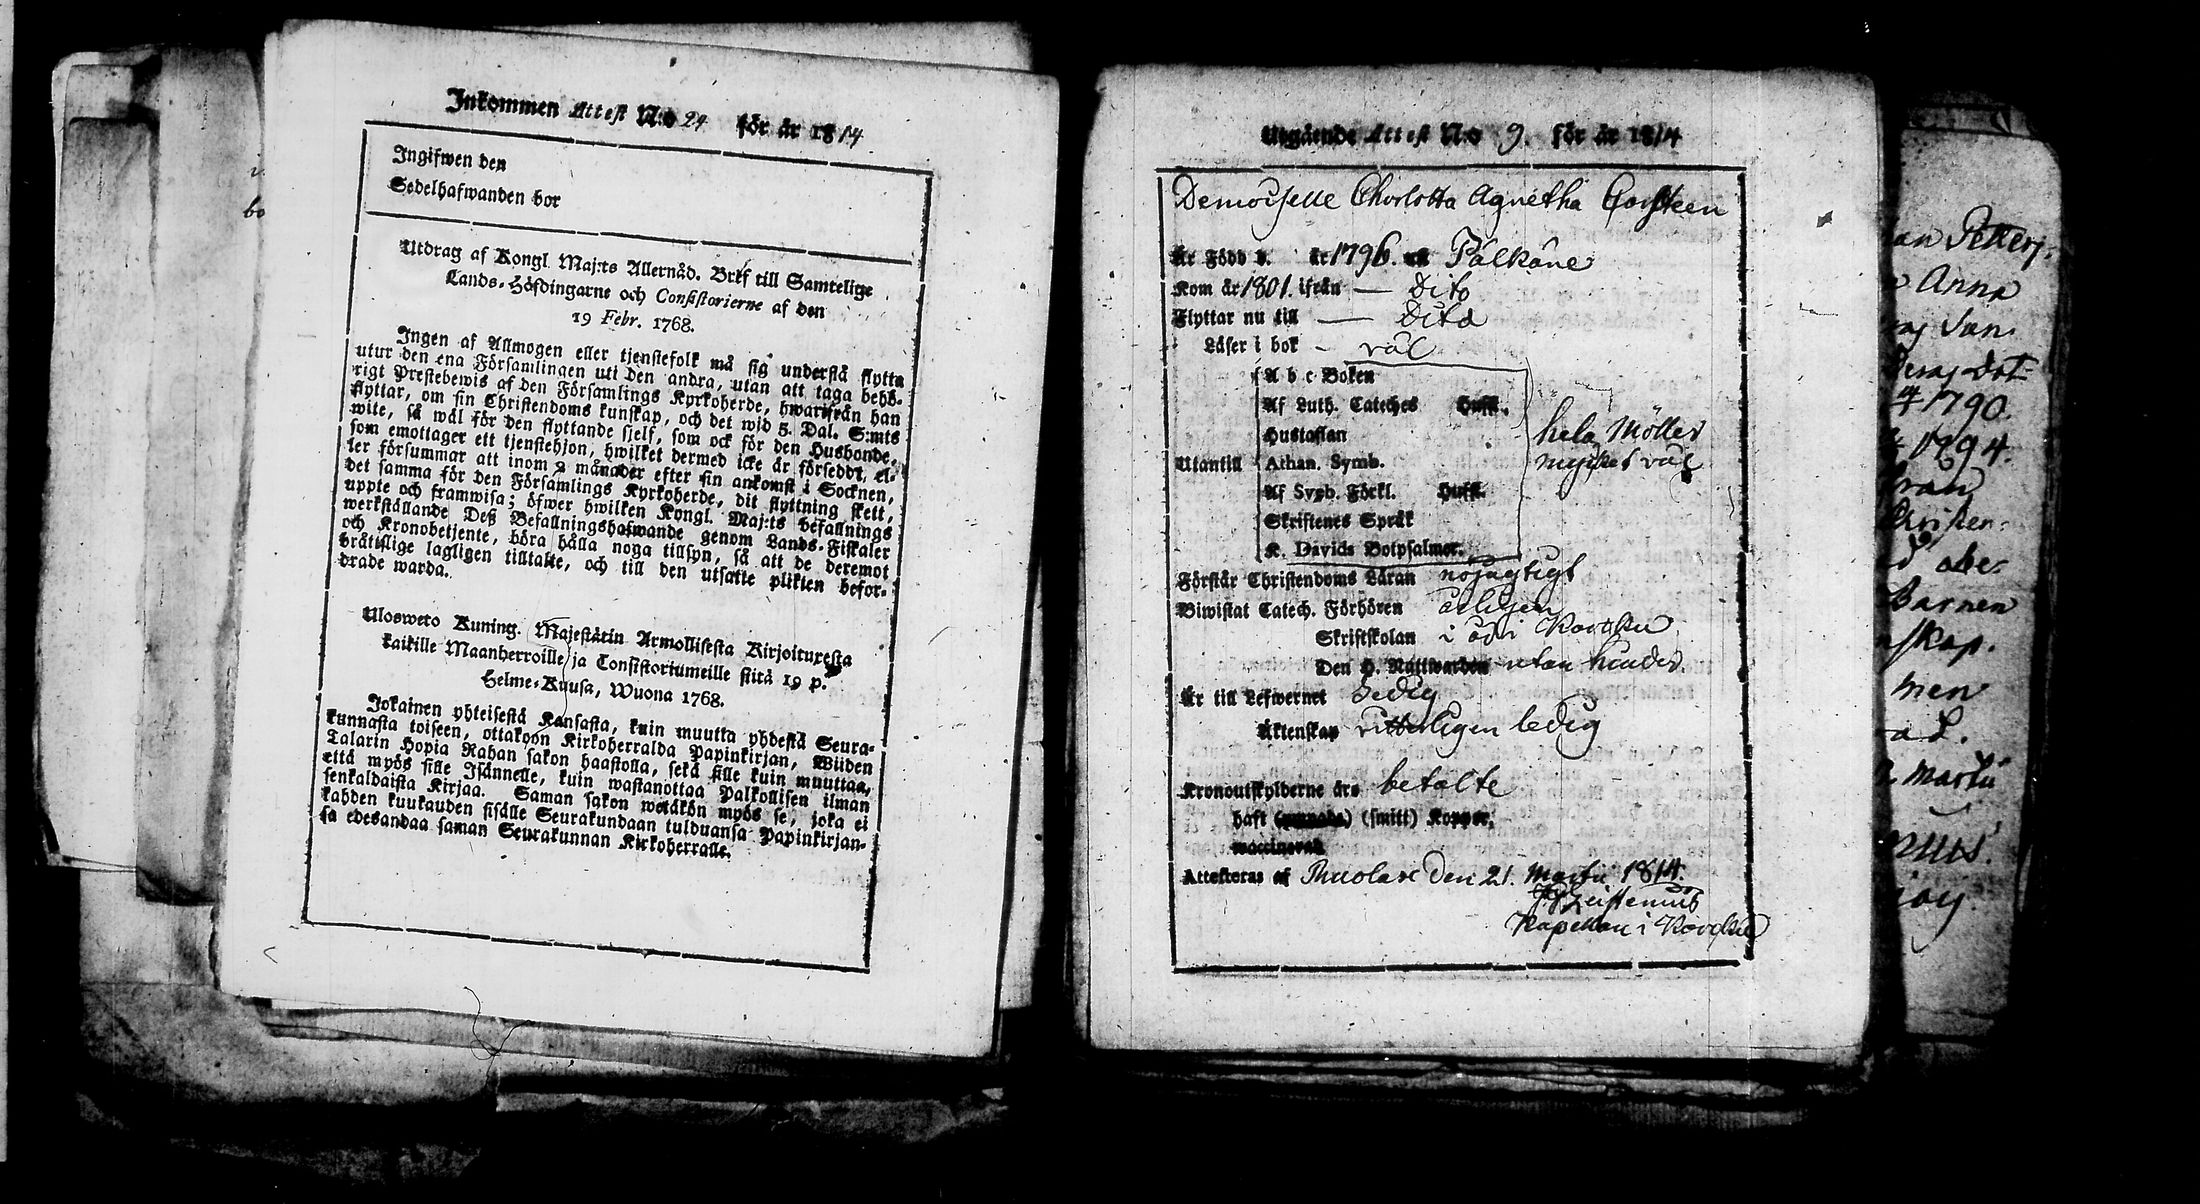 Inkommen Attest N:o 24 för år 1814
Ingifwen den
Sedelhafwanden bor
Utdrag af Kongl. Maj:ts Allernåd. Bref till Samtelige
Lands-Höfdingarne och Consistorierne af den
19 Febr. 1768.
Ingen af Allmogen eller tjenstefolk må sig understå flytta
utur den ena Församlingen uti den andra, utan att taga behö-
rigt Prestebewis af den Församlings Kyrkoherde, hwarifrån han
flyttar, om sin Christendoms kunskap, och det wid 5. Dal. S:mts
wite, så wäl för den flyttande sjelf, som ock för den Husbonde,
som emottager ett tjenstehjon, hwilket dermed icke är försedt, el-
ler försummar att inom 2 månader efter sin ankomst i Socknen,
det samma för den Församlings Kyrkoherde, dit flyttning skett,
uppte och framwisa; öfwer hwilken Kongl. Maj:ts befallnings
werkställande Deß Befallningshafwande genom Lands-Fiskaler
och Kronobetjente, böra hålla noga tillsyn, så att de deremot
brätslige lagligen tilltalte, och till den utsatte plikten befor-
drade warda.
Ulosweto Kuning. Majestätin Armollisesta Kirjoituxesta
kaikille Maanherroille ja Consistoriumeille siitä 19 p.
Helme-Kuusa, Wuona 1768.
Jokainen yhteisestä Kansasta, kuin muutta yhdestä Seura-
kunnasta toiseen, ottakoon Kirkoherralda Papinkirjan, Wiiden
Talarin Hopia Rahan sakon haastolla, sekä sille kuin muuttaa,
että myös sille Isännelle, kuin wastanottaa Palkollisen ilman
senkaldaista Kirjaa. Saman sakon wetäkön myös se, joka ei
kahden kuukauden sisälle Seurakundaan tulduansa Papinkirjan-
sa edesandaa saman Seurakunnan Kirkoherralle.
Utgående Attest N:o 9. för år 1814
Demoiselle Charlotta Agnetha Carsteen
Är Född d. år 1796. uti Pälkäne
Kom år 1801. ifrån — Dito
Flyttar nu till — Dito
Läser i bok - väl
A b c Boken
Af Luth. Cateches Hufst.
Hustaflan
Utantill Athan. Symb.
Af Sveb. Förkl. Hufst.
Skriftenes Språk
K. Davids Botpsalmer.
hela Möller
mycket väl
Förstår Christendoms Läran nöjagtigt
Biwistat Catech. Förhören årligen
Skriftskolan i år i
Den H. Nattwarden utan hinder.
Är till Lefwernet Sedig
Äktenskap ledig
Kronoutskylderne äro betalte
haft (smitt) Koppor,
vaccinerad
Attesteras af den 21. Martii 1814.
Kapellan i
an Petters
Anna
1790.
1794.
från
Barnen
men
Martii